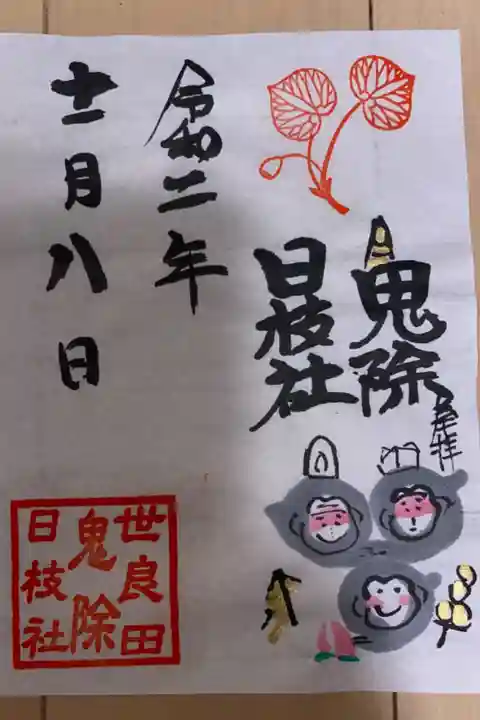 奉拝
鬼除
日枝社
令和二年
十一月八日
世良田
鬼除
日枝社